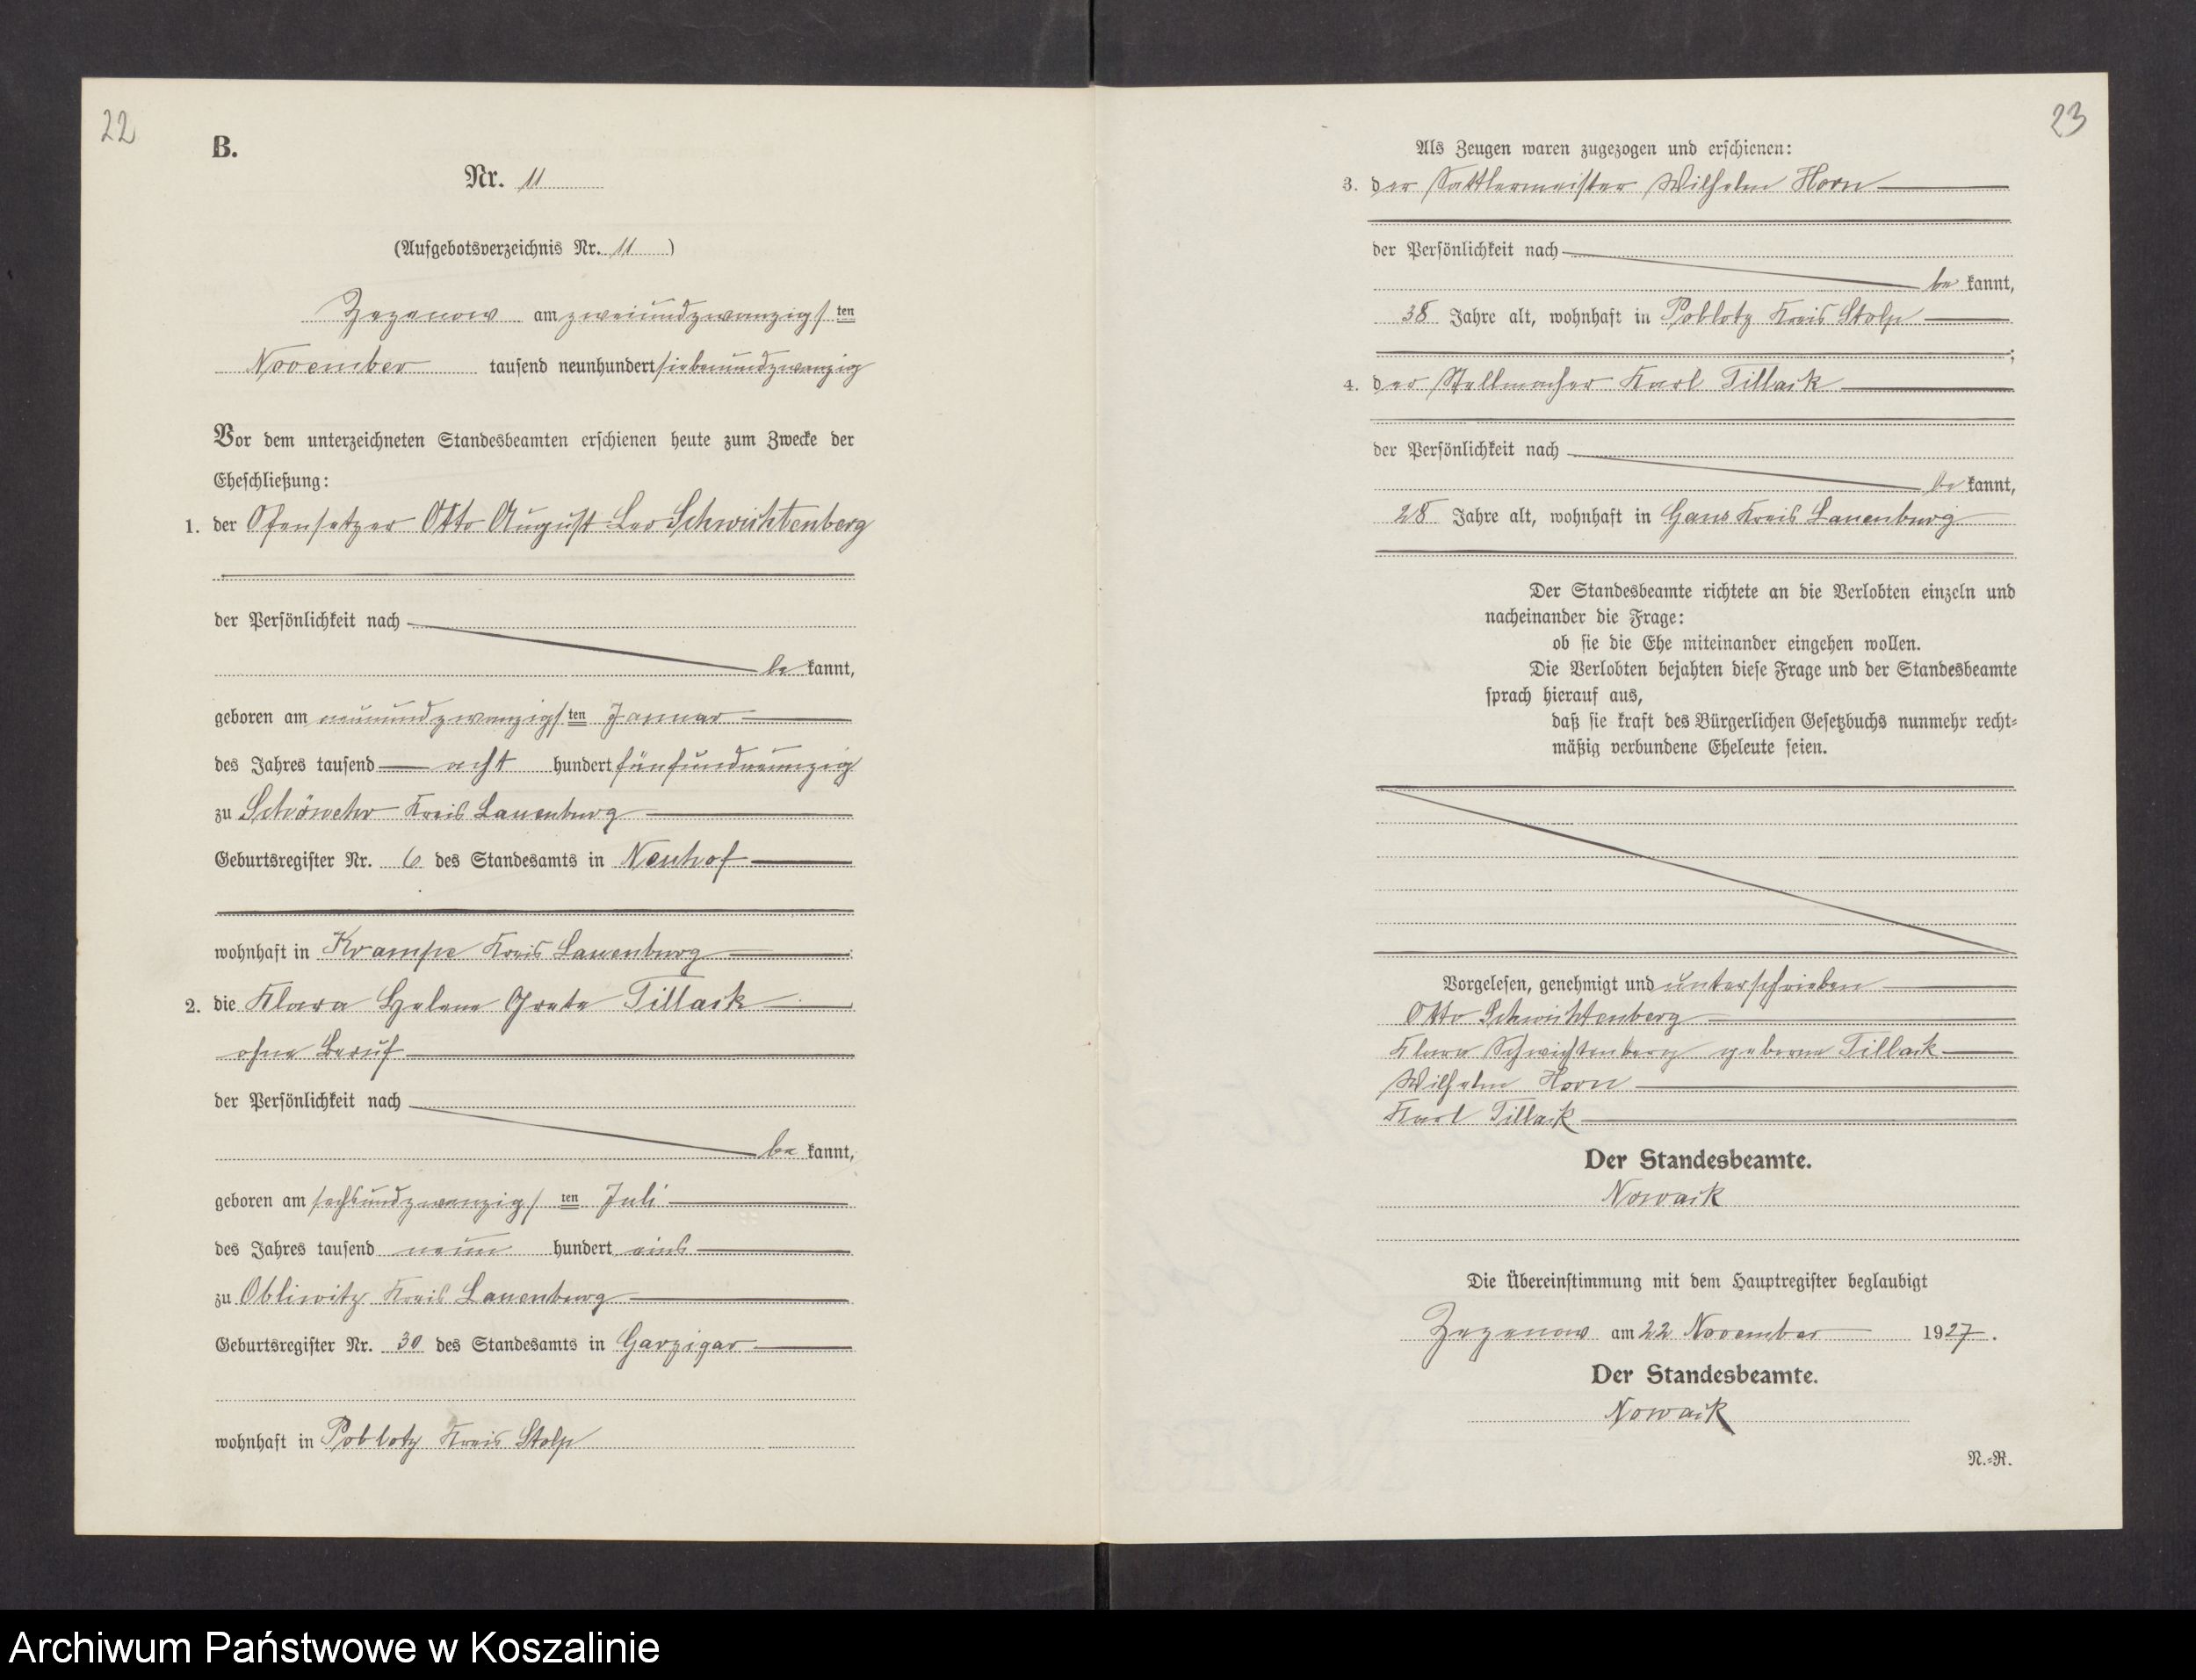 22
B.
Nr. 11
(Aufgebotsverzeichnis Nr. 11)
Zezenow am zweiundzwanzigsten
November tausend neunhundert siebenundzwanzig
Vor dem unterzeichneten Standesbeamten erschienen heute zum Zwecke der
Eheschließung:
1. der Ofensetzer Otto August Leo Schwichtenberg
der Persönlichkeit nach
be kannt,
geboren am neunundzwanzigsten Januar
des Jahres tausend acht hundert fünfundneunzig
zu Schöwehr Kreis Lauenburg
Geburtsregister Nr. 6 des Standesamts in Neuhof
wohnhaft in Krampe Kreis Lauenburg
2. die Klara Helene Grete Tillack
ohne Beruf
der Persönlichkeit nach
be kannt,
geboren am sechsundzwanzigsten Juli
des Jahres tausend neun hundert eins
zu Obliwitz Kreis Lauenburg
Geburtsregister Nr. 30 des Standesamts in Garzigar
wohnhaft in Poblotz Kreis Stolp
23
Als Zeugen waren zugezogen und erschienen:
3. der Sattlermeister Wilhelm Horn
der Persönlichkeit nach
be kannt,
38 Jahre alt, wohnhaft in Poblotz Kreis Stolp
;
4. der Stellmacher Karl Tillack
der Persönlichkeit nach
be kannt,
28 Jahre alt, wohnhaft in Gans Kreis Lauenburg
Der Standesbeamte richtete an die Verlobten einzeln und
nacheinander die Frage:
ob sie die Ehe miteinander eingehen wollen.
Die Verlobten bejahten diese Frage und der Standesbeamte
sprach hierauf aus,
daß sie kraft des Bürgerlichen Gesetzbuchs nunmehr recht-
mäßig verbundene Eheleute seien.
Vorgelesen, genehmigt und unterschrieben
Otto Schwichtenberg
Klara Schwichtenberg geborne Tillack
Wilhelm Horn
Karl Tillack
Der Standesbeamte.
Nowack
Die Übereinstimmung mit dem Hauptregister beglaubigt
Zezenow am 22 November 1927.
Der Standesbeamte.
Nowack
N.-R.
Archiwum Państwowe w Koszalinie